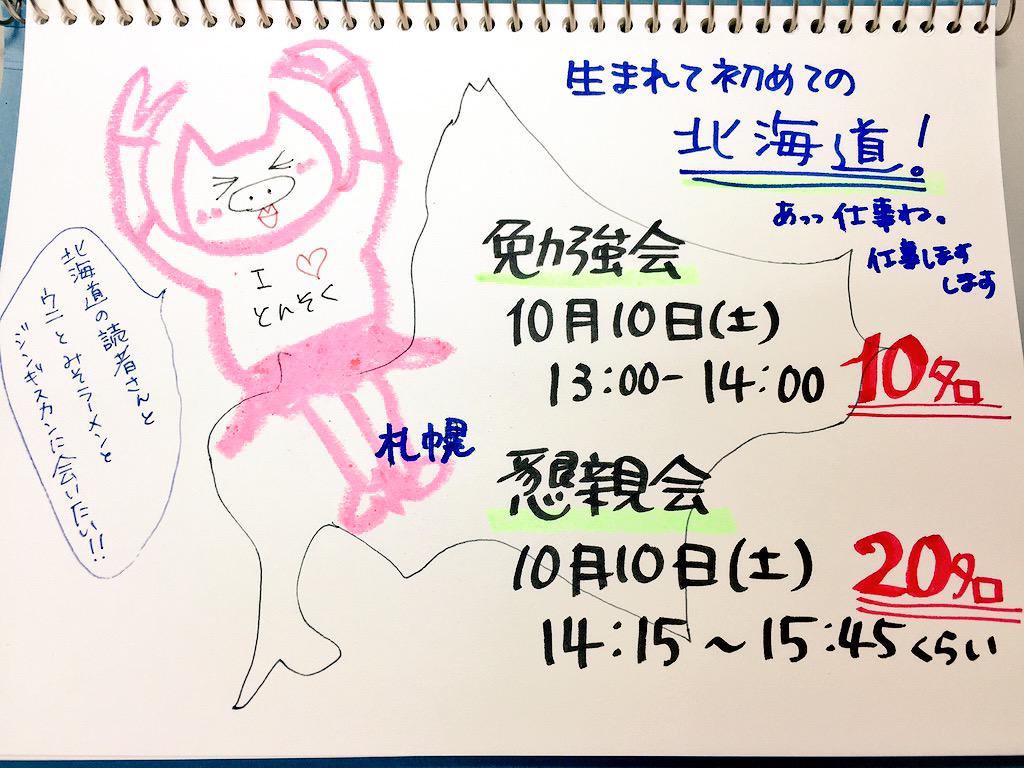 生まれて初めての
北海道!
あっっ仕事ね。
仕事します
します
勉強会
10月10日(土)
13:00-14:00
10名
懇親会
10月10日(土)
14:15~15:45くらい
20名
札幌
I ♡
とんそく
北海道の読者さんと
ウニとみそラーメンと
ジンギスカンに会いたい!!